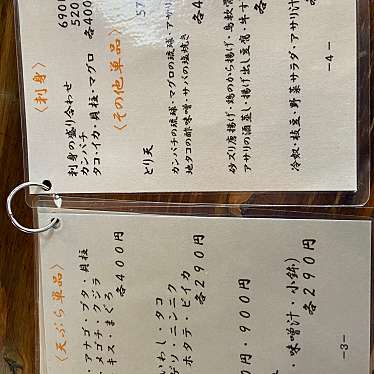 〈刺身〉
刺身の盛り合わせ 690
カンパチ 520
タコ・イカ 貝柱・マグロ 各400
〈その他単品〉
とり天 57
カンパチの琉球・マグロの琉球・アサリ
地タコの酢味噌・サバの塩焼き 各4
砂ズリ唐揚げ・鶏のから揚げ・鳥軟骨
アサリの酒蒸し・揚げ出し豆腐・牛す
冷奴・枝豆・野菜サラダ・アサリ汁
-4-
〈天ぷら単品〉
・アナゴ・ブタ・貝柱
・メゴチ・クジラ
キス・まぐろ 各400円
いわし・タコ
・ニンニク
ホタテ・ビイカ 各290円
0円・900円
・味噌汁・小鉢)
各290円
-3-